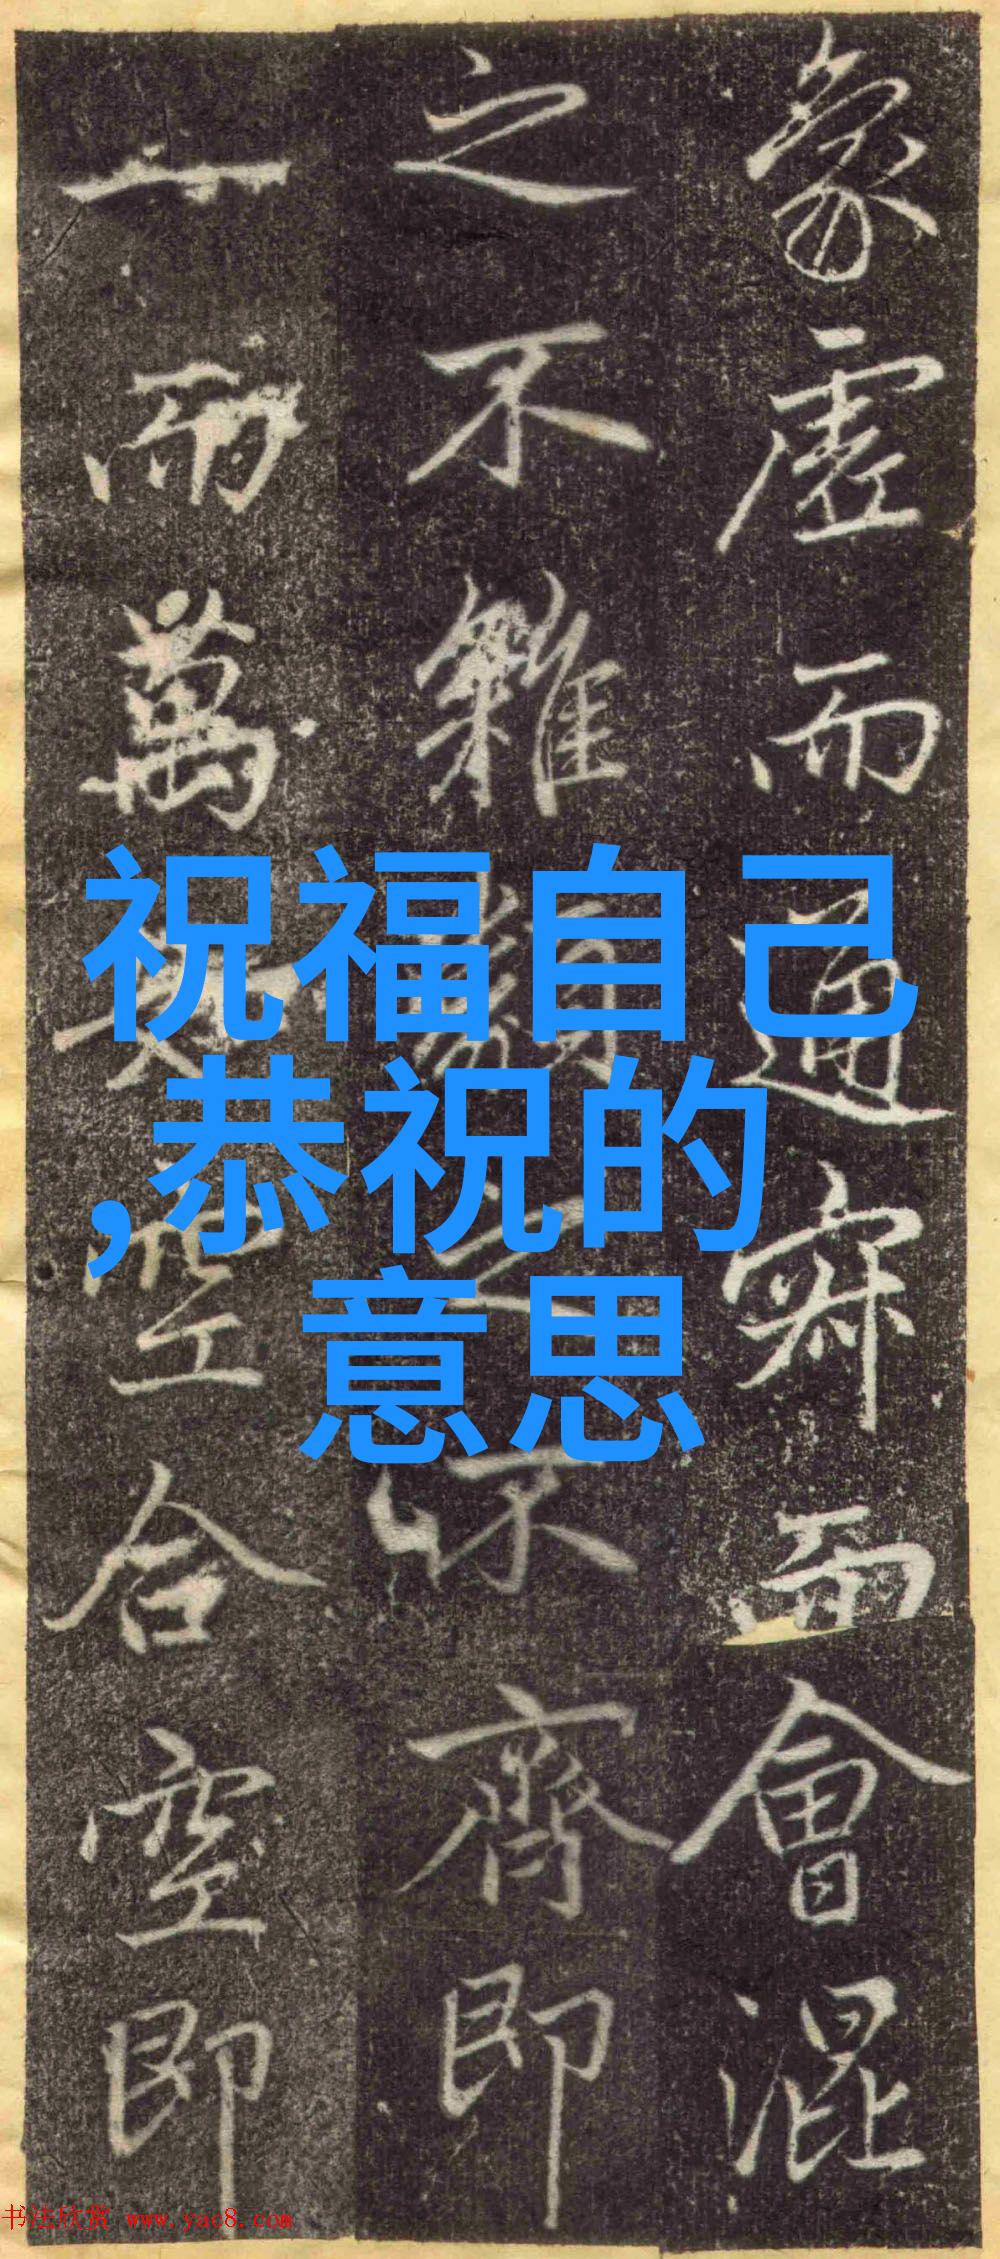 象虛而通寂而會混
之不雜之不齊即
一而萬空合空即
祝福自己
,恭祝的
意思
书法欣赏 www.yac8.com